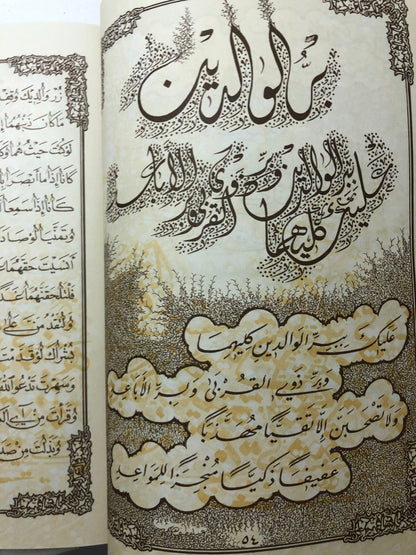 بِرُّ الْوَالِدَيْنِ
عليك ببر الوالدين كليهما وبر ذوي القربى وبر الأباعد
عليك ببر الوالدين كليهما
وبر ذوي القربى وبر الأباعد
ولا تصحبن إلا تقيًا مهذبًا
عفيفًا ذكيًا منجزًا للمواعد
٥٤
زر والديك وقف
ما كان ذنبهما
لو كنت حيث هما
كانا إذا ما أبصرا
كانا إذا سمعا
وتمنيا لو صاد
أنسيت حقهما
فلتلحقنهما غد
بشراك لو قدمت
وسهرت تدعو الله
وقرأت من آي
وبذلت من صد